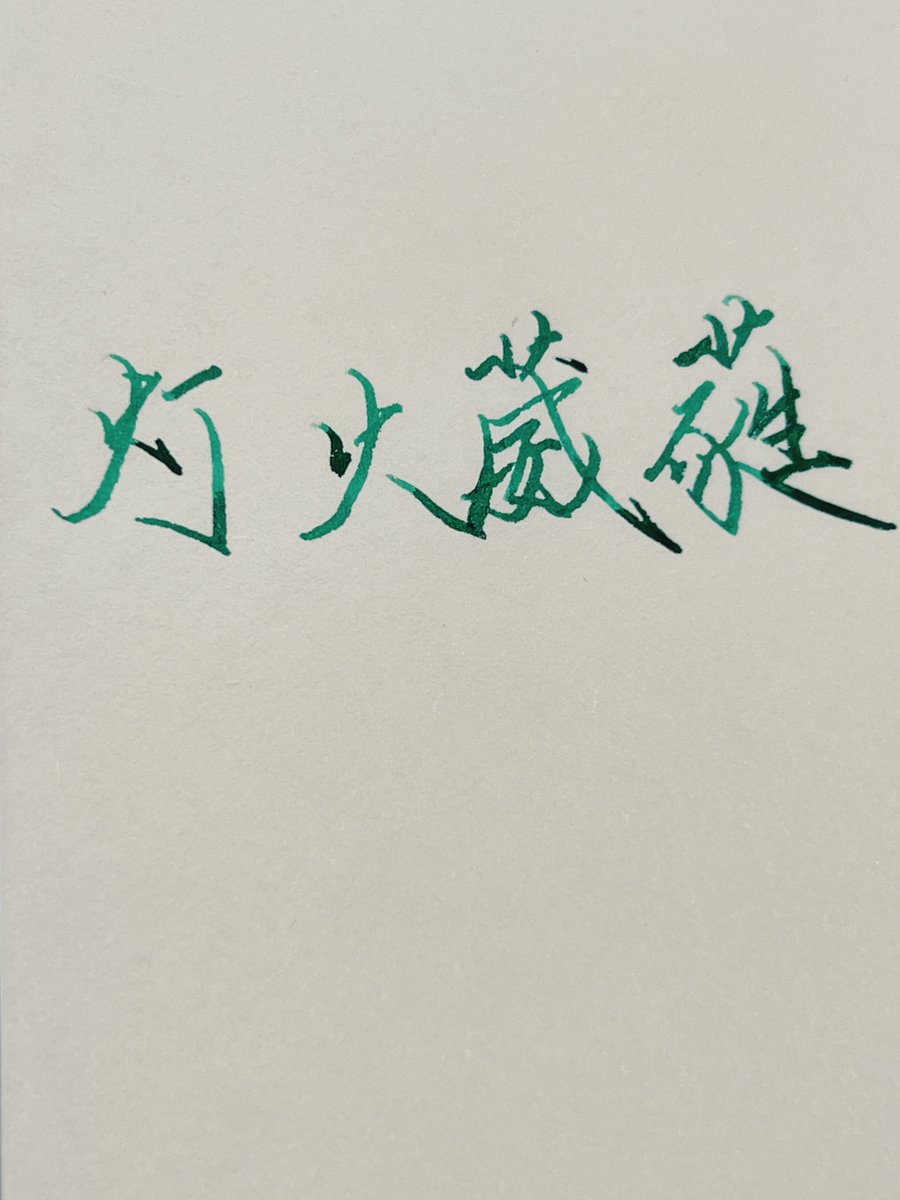 灯火葳蕤